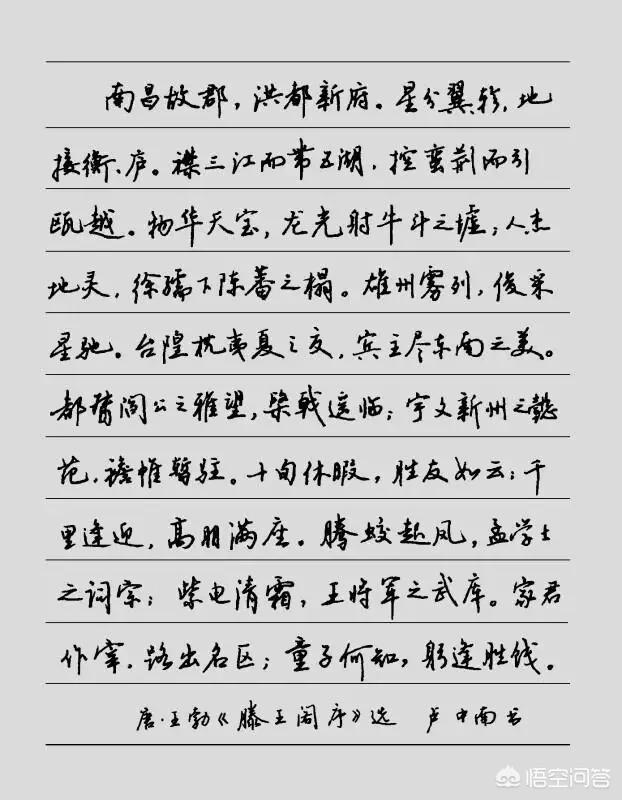 南昌故郡，洪都新府。星分翼轸，地
接衡、庐。襟三江而带五湖，控蛮荆而引
瓯越。物华天宝，龙光射牛斗之墟；人杰
地灵，徐孺下陈蕃之榻。雄州雾列，俊采
星驰。台隍枕夷夏之交，宾主尽东南之美。
都督阎公之雅望，棨戟遥临；宇文新州之懿
范，襜帷暂驻。十旬休暇，胜友如云；千
里逢迎，高朋满座。腾蛟起凤，孟学士
之词宗；紫电清霜，王将军之武库。家君
作宰，路出名区；童子何知，躬逢胜饯。
唐·王勃《滕王阁序》选 卢中南书
悟空问答